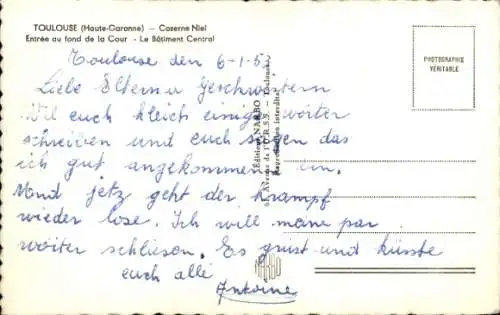 TOULOUSE (Haute-Garonne) — Caserne Niel
Entrée au fond de la Cour - Le Bâtiment Central
PHOTOGRAPHIE
VÉRITABLE
Toulouse den 6-1-5
Liebe Eltern u Geschwistern
Wil euch kleich einige wörter
schreiben und euch sagen das
ich gut angekommen bin.
Und jetz geht der krampf
wieder lose. Ich will meine par
wörter schliesen. Es grüst und küsste
euch alle
Antoine
Éditions NARBO
Avenue de l'U.R.S.S. - Toulouse
Reproduction interdite
NARBO